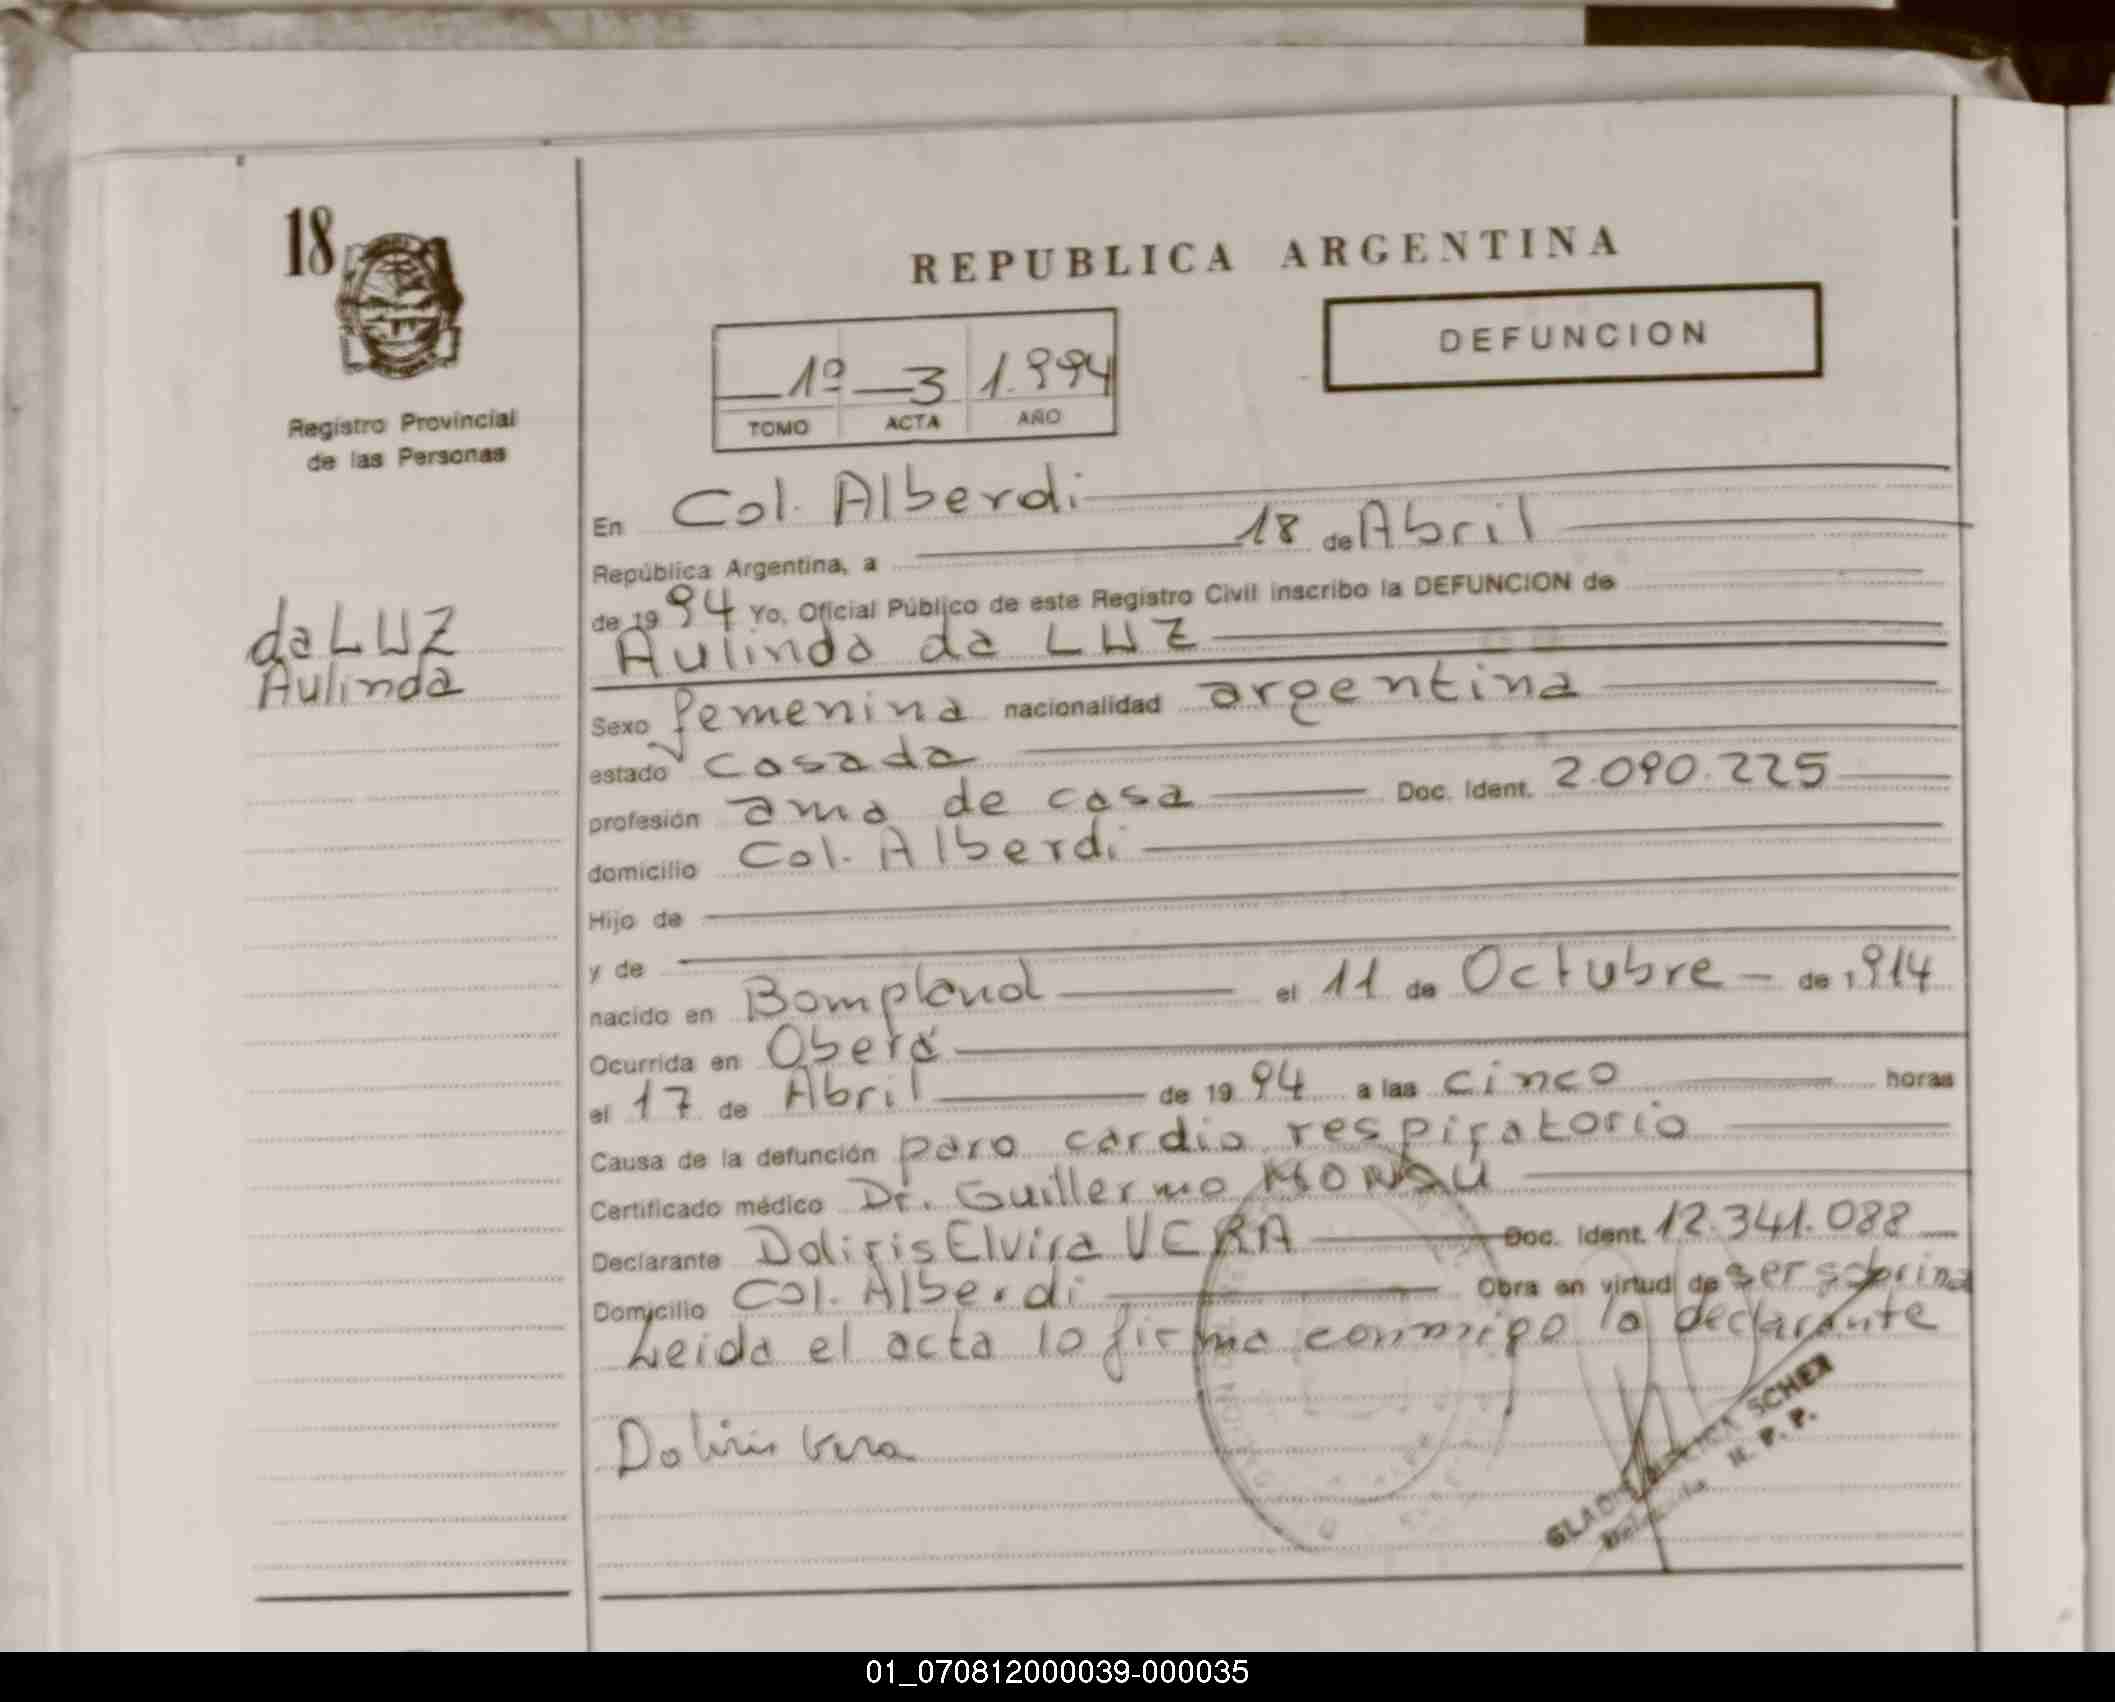 18
Registro Provincial
de las Personas
da LUZ
Aulinda
REPUBLICA ARGENTINA
DEFUNCION
1º 3 1.994
TOMO ACTA AÑO
En Col. Alberdi
República Argentina, a 18 de Abril
de 1994 Yo, Oficial Público de este Registro Civil inscribo la DEFUNCION de
Aulinda da LUZ
Sexo femenina nacionalidad argentina
estado casada
profesión ama de casa Doc. Ident. 2.090.225
domicilio Col. Alberdi
Hijo de
y de
nacido en Bompland el 11 de Octubre de 1914
Ocurrida en Oberá
el 17 de Abril de 1994 a las cinco horas
Causa de la defunción paro cardio respiratorio
Certificado médico Dr. Guillermo
Declarante Doliris Elvira VERA Doc. Ident. 12.341.088
Domicilio Col. Alberdi Obra en virtud de ser sobrina
Leida el acta la firma conmigo la declarante
Doliris Vera
SCHEX
R. P. P.
01_070812000039-000035